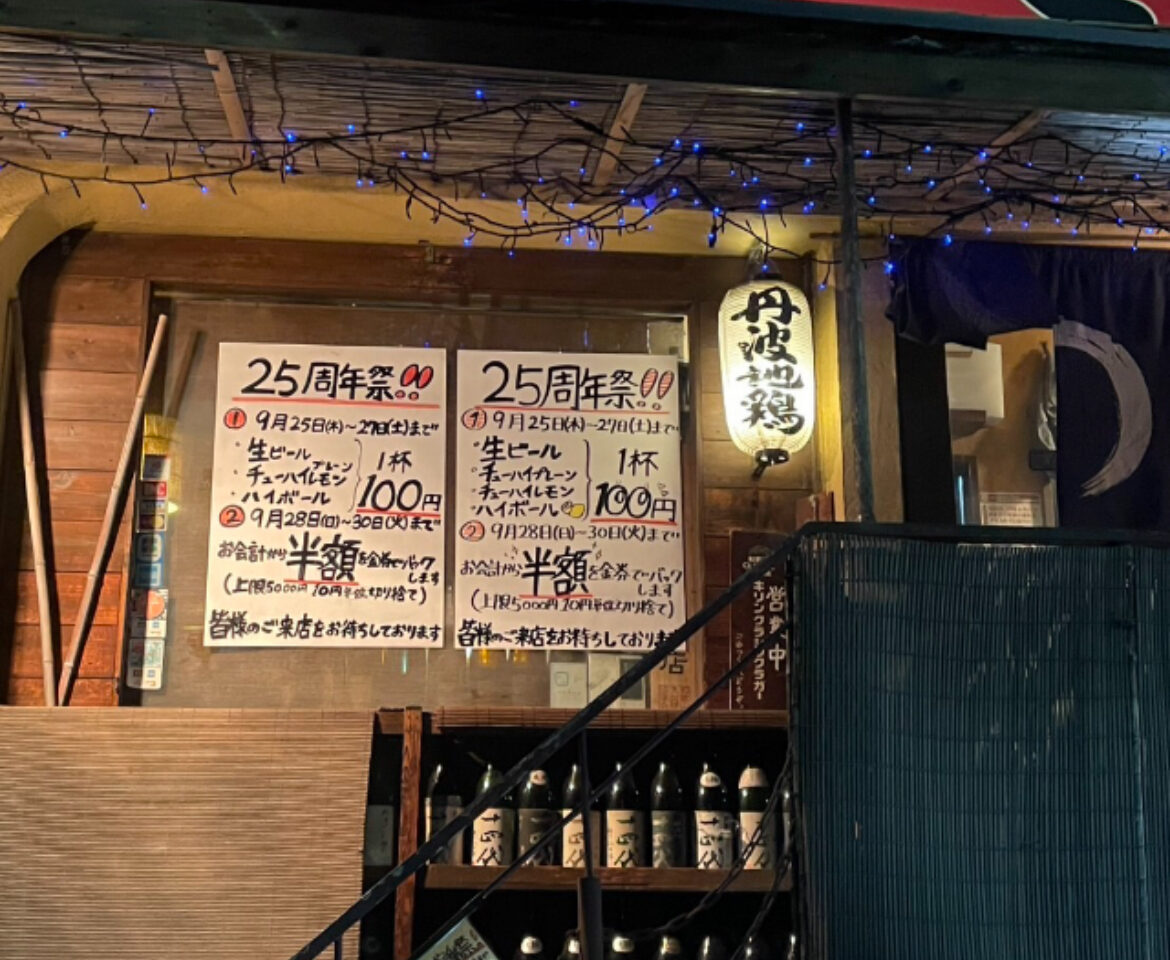 25周年祭!!
① 9月25日(木)~27日(土)まで
・生ビール
・チューハイプレーン
・チューハイレモン
・ハイボール
1杯
100円
② 9月28日(日)~30日(火)まで
お会計から半額を金券でバックします
(上限5000円 10円単位切り捨て)
皆様のご来店をお待ちしております
25周年祭!!
① 9月25日(木)~27日(土)まで
・生ビール
・チューハイプレーン
・チューハイレモン
・ハイボール
1杯
100円
② 9月28日(日)~30日(火)まで
お会計から半額を金券でバックします
(上限5000円 10円単位切り捨て)
皆様のご来店をお待ちしております
丹波地鶏
営業中
キリンクラシックラガー
店
十四代
十四代
十四代
十四代